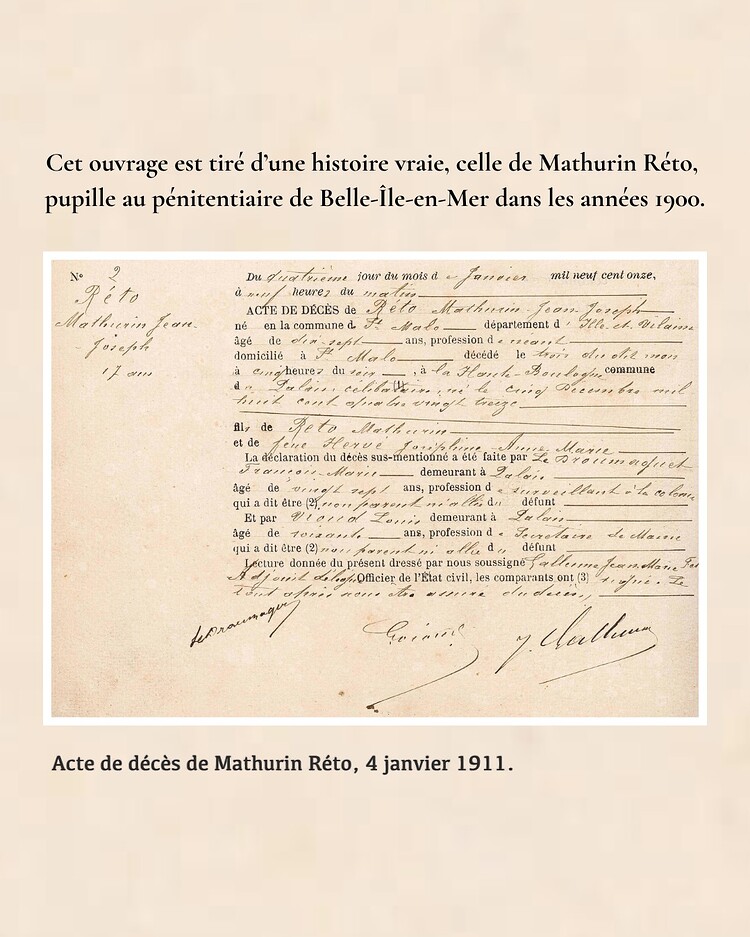 Cet ouvrage est tiré d'une histoire vraie, celle de Mathurin Réto,
pupille au pénitentiaire de Belle-Île-en-Mer dans les années 1900.
N° 2
Réto
Mathurin Jean-
Joseph
17 ans
Du quatrième jour du mois de Janvier mil neuf cent onze,
à neuf heures du matin
ACTE DE DÉCÈS de Réto Mathurin Jean Joseph
né en la commune d St Malo département d' Ille-et-Vilaine
âgé de dix-sept ans, profession de néant
domicilié à St Malo décédé le trois du dit mois
à cinq heures du soir, à la Haute-Boulogne commune
de Palais, célibataire, (1) né le cinq Décembre mil
huit cent quatre vingt treize
fils de Réto Mathurin
et de feue Hervé Joséphine-Anne Marie
La déclaration du décès sus-mentionné a été faite par Le Droumaguet
François-Marie demeurant à Palais
âgé de vingt sept ans, profession de surveillant à la colonie
qui a dit être (2) non parent ni allié du défunt
Et par Louis demeurant à Palais
âgé de soixante ans, profession de Secrétaire de Mairie
qui a dit être (2) non parent ni allié du défunt
Lecture donnée du présent dressé par nous soussigné Jean Marie
Adjoint Officier de l'État civil, les comparants ont (3) signé. Le
tout après nous être assuré du décès,
Le Droumaguet
Acte de décès de Mathurin Réto, 4 janvier 1911.